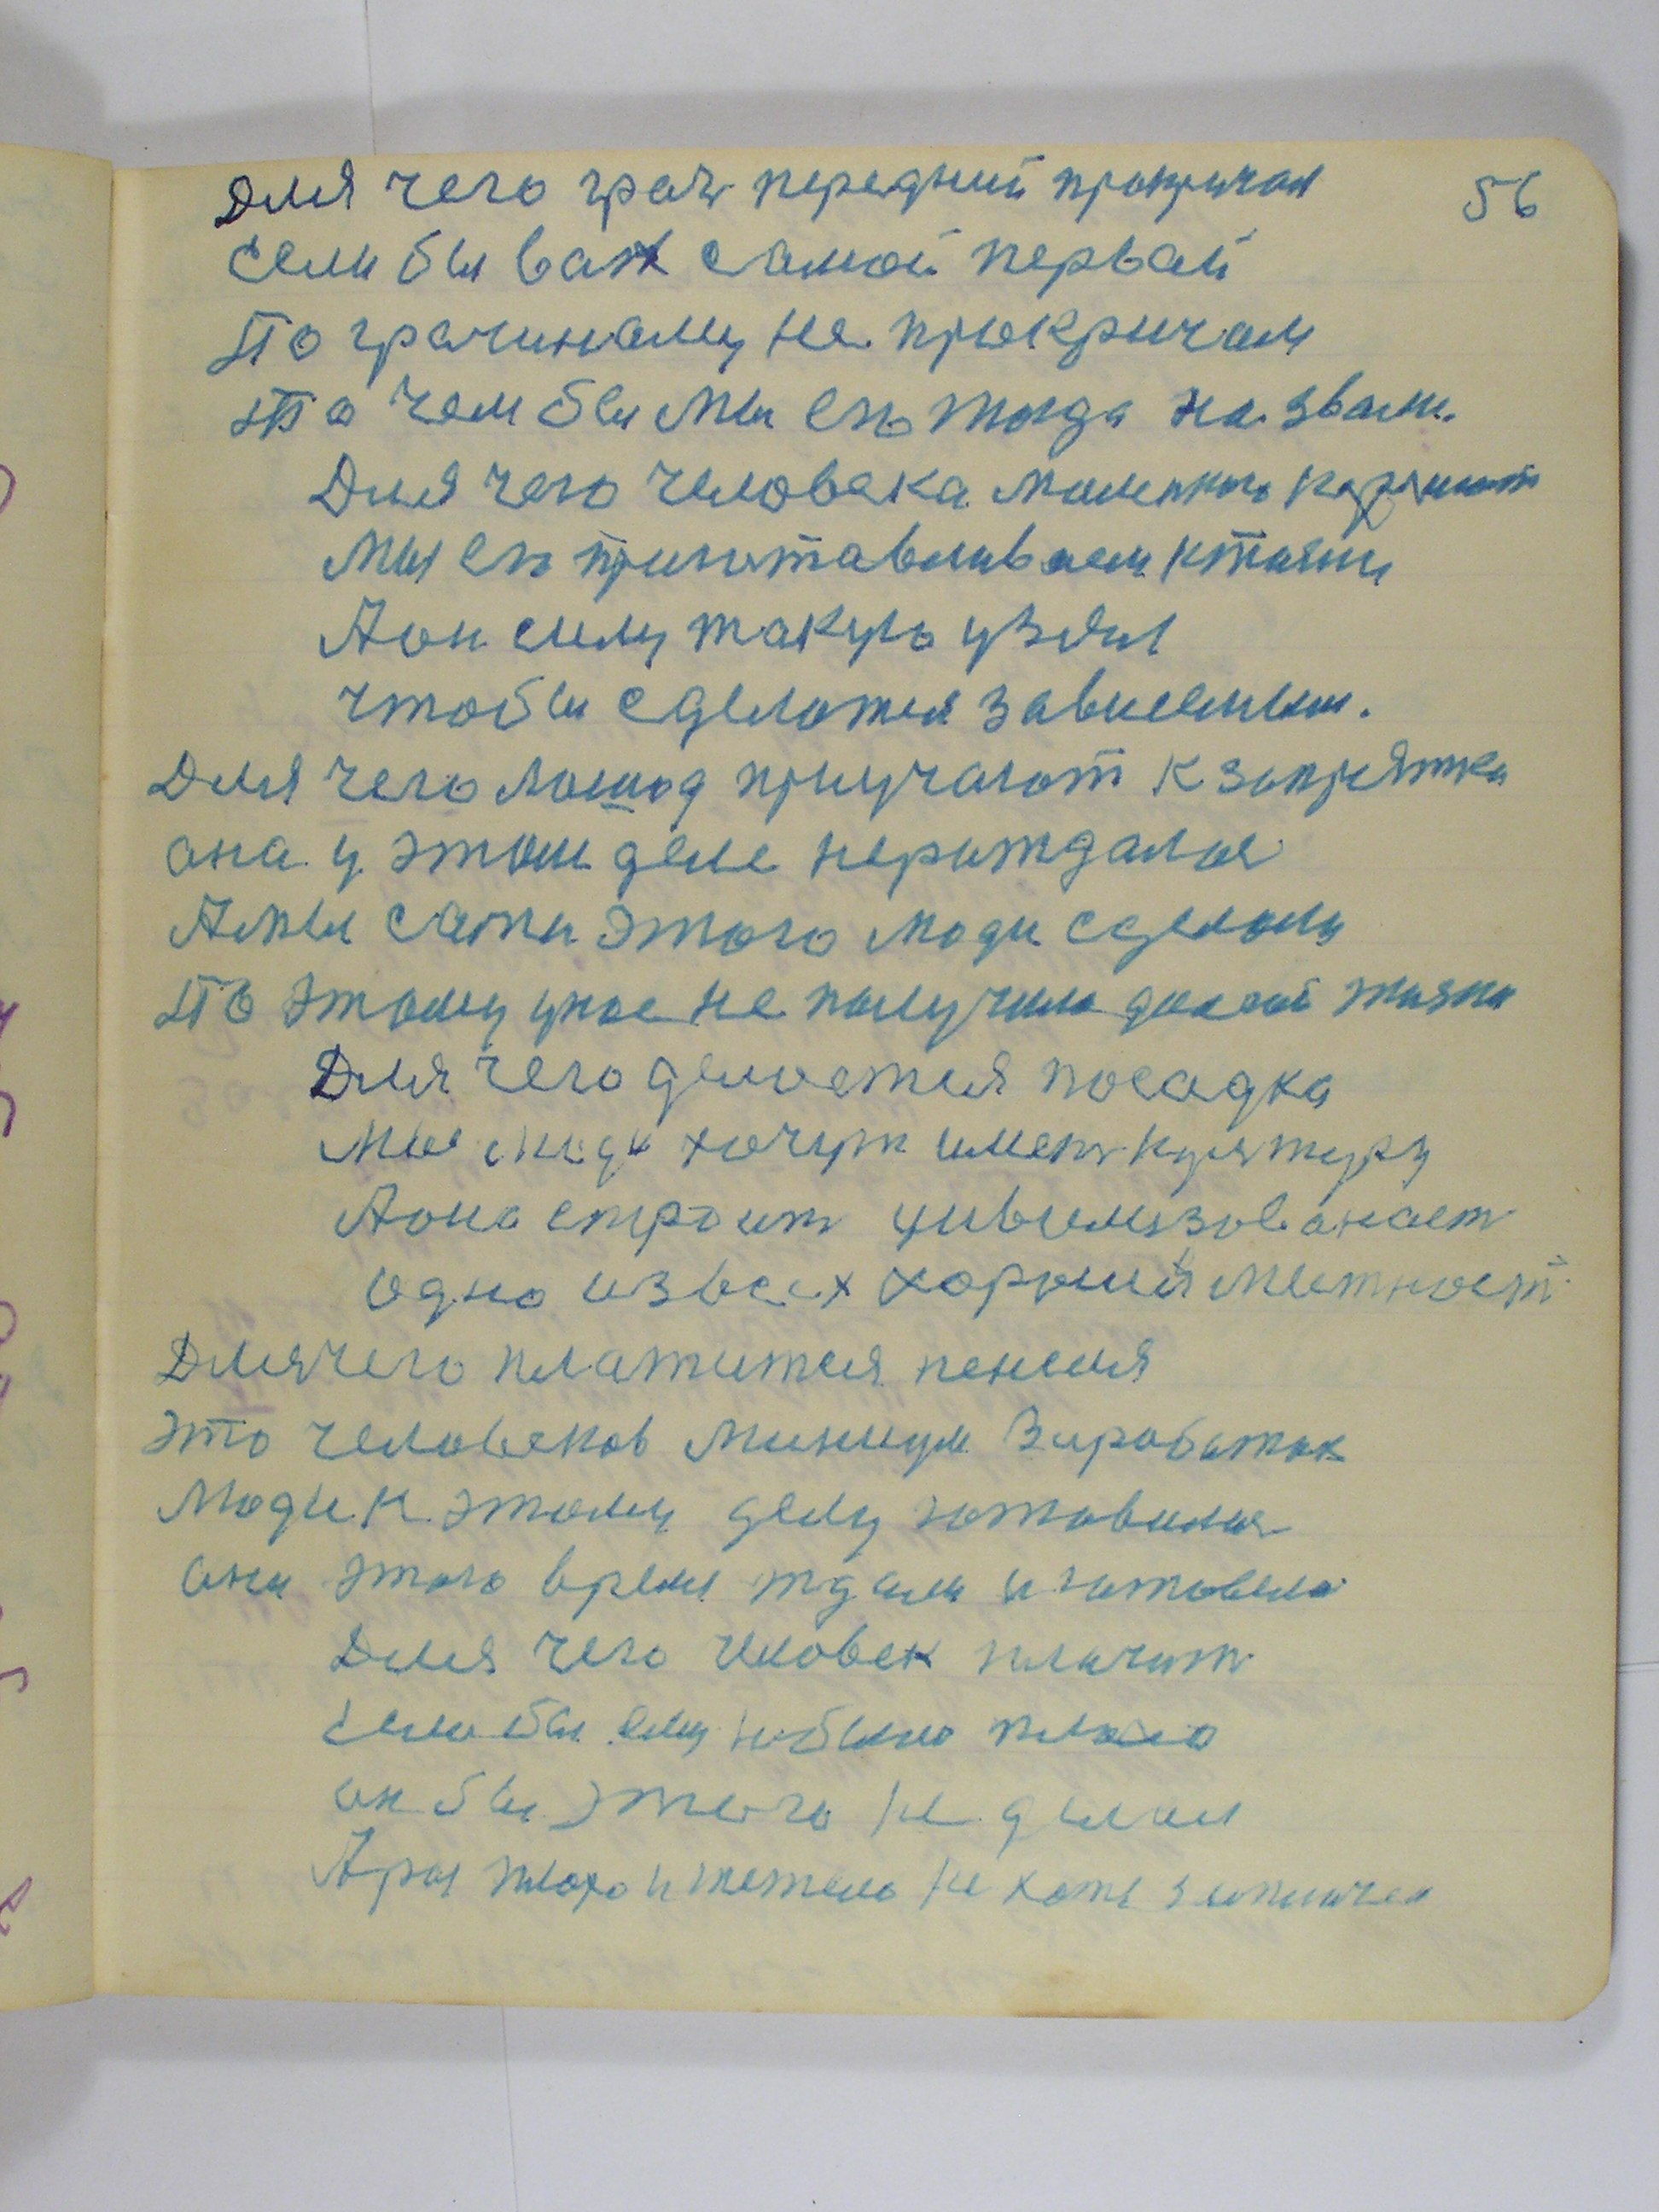 56
Для чего грач передний прокричал
если бы важ самой первай
По грачинаму не прокричал
То чем бы мы ево тогда назвали.
Для чего человека маленького кормит
Мы ево приготавливаем к
А он силу такую узял
чтобы сделатся зависемым.
Для чего лошод приучают к запрятки
она у этом деле нерождалас
А мы сами этого люди сделали
По этому унас не получило долгой жизни
Для чего делается посадка
Мы люди хочут имет культуру
А она строит цивилизованаст
одно из всех хороший местност
Для чего платится пенсия
это человеков минимум Заработок
Люди к этому делу готовилис
они этого время ждали и готовели
Для чего человек плачит
если бы ему ни было плохо
он бы этого не делал
А раз плохо и тежело не хотя заплачеш